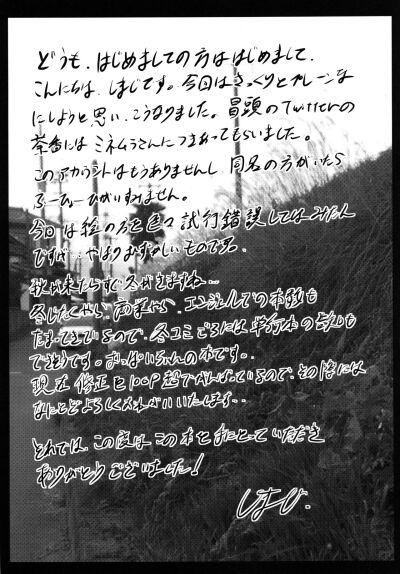 どうも、はじめましての方ははじめまして、
こんにちは、しまじです。今回はさっくりとプレーンな
にしようと思い、こうなりました。冒頭のTwitterの
には ミネムラさんにつきあってもらいました。
このアカウントはもうありませんし、同名の方がいたら
すみません。
今回は絵の方も色々試行錯誤してはみたん
ですが…やはりむずかしいものです。
秋が来たらすぐ冬がきますね…
冬したくやら、商業やら、エロ
たまってきているので、冬コミごろには単行本の
できそうです。おっぱい の本です。
現在 修正と100P超でがんばっているので、その際には
なにとぞよろしくおねがいいたします…
それでは、この度はこの本を手にとっていただき
ありがとうございました!